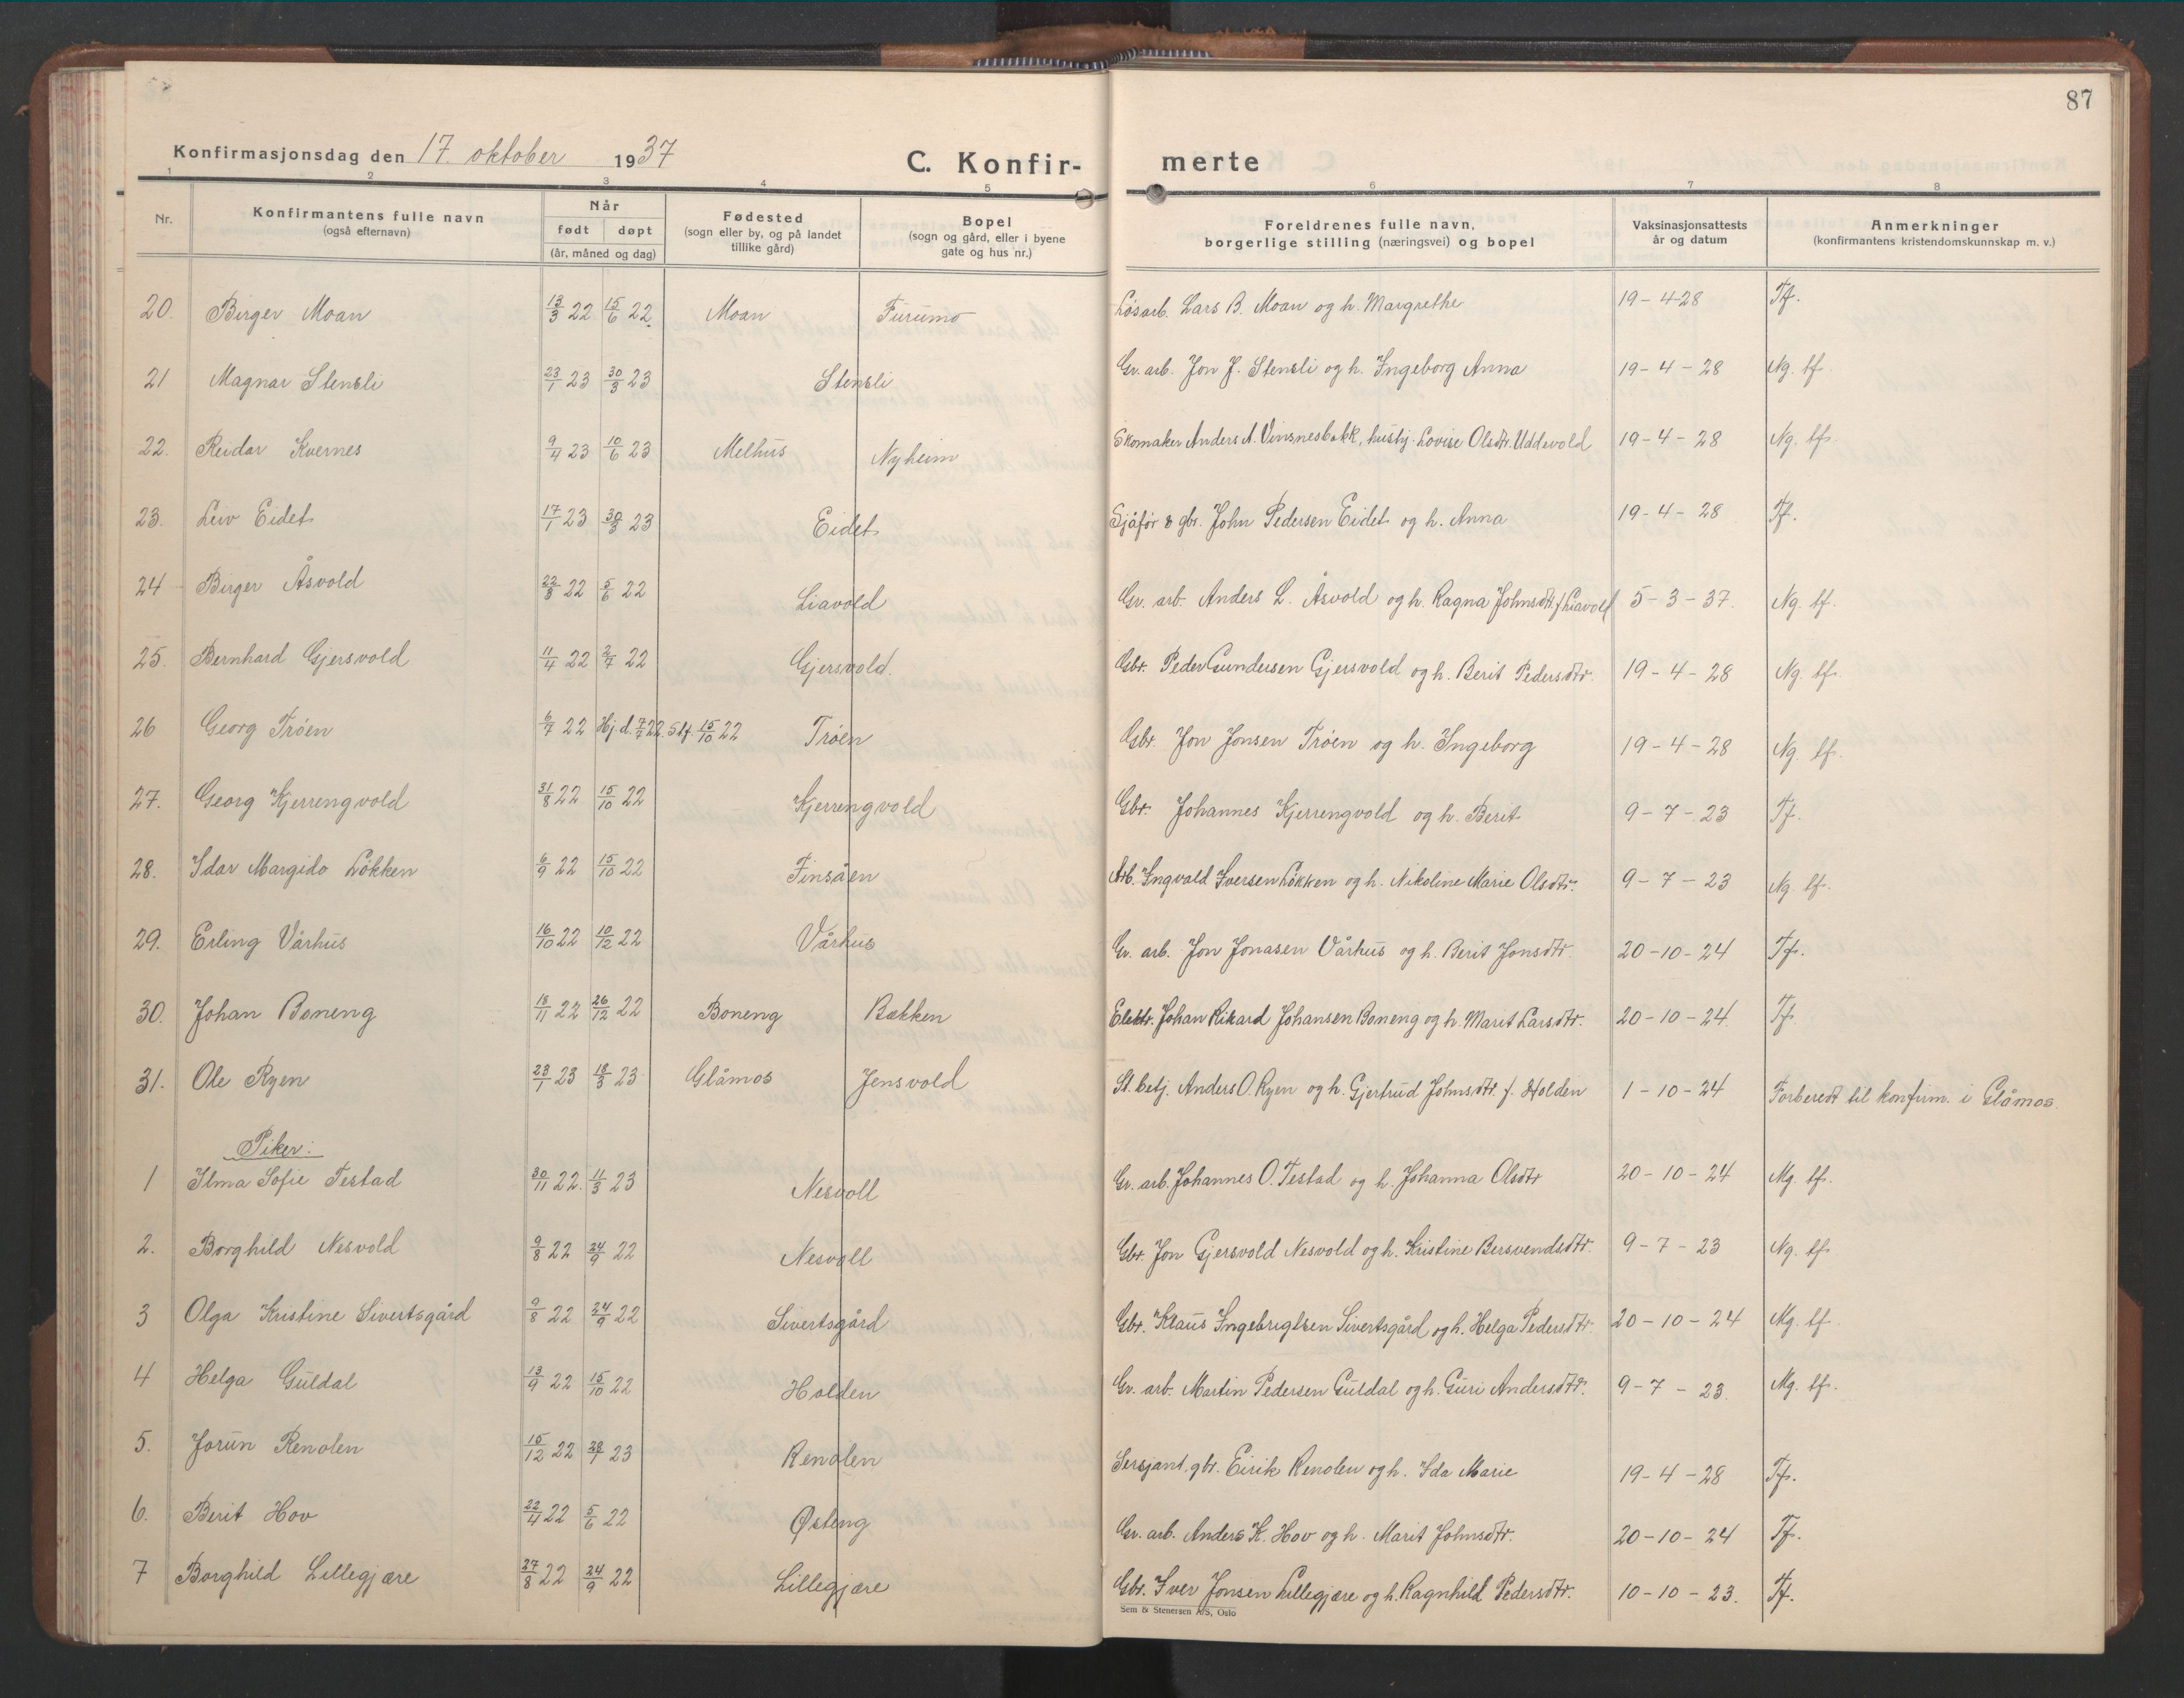 87
Konfirmasjonsdag den 17. oktober 1937
C. Konfir- merte
1 2 3 4 5 6 7 8
Nr. Konfirmantens fulle navn (også efternavn) Når født døpt (år, måned og dag) Fødested (sogn eller by, og på landet tillike gård) Bopel (sogn og gård, eller i byene gate og hus nr.) Foreldrenes fulle navn, borgerlige stilling (næringsvei) og bopel Vaksinasjonsattests år og datum Anmerkninger (konfirmantens kristendomskunnskap m. v.)
20. Birger Moan 13/3 22 15/6 22 Moan Furumo Løsarb. Lars B. Moan og h. Margrethe 19-4-28 Tf.
21 Magnar Stensli 23/1 23 30/3 23 Stensli Gr. arb. Jon J. Stensli og h. Ingeborg Anna 19-4-28 Ng. tf.
22. Reidar Kvernes 9/4 23 10/6 23 Melhus Nyheim Skomaker Anders A. Vinsnesbakk, hustj. Lovise Olsdtr. Uddevold 19-4-28 Ng. tf.
23. Leiv Eidet 17/1 23 30/3 23 Eidet Sjåfør & gbr. John Pedersen Eidet og h. Anna 19-4-28 Tf.
24 Birger Åsvold 22/3 22 5/6 22 Liavold Gr. arb. Anders L. Åsvold og h. Ragna Johnsdtr. f. Liavold 5-3-37. Ng. tf.
25. Bernhard Gjersvold 11/4 22 2/7 22 Gjersvold. Gbr. Peder Gundersen Gjersvold og h. Berit Pedersdtr. 19-4-28 Ng. tf.
26 Georg Trøen 6/7 22 Hj. d. 7/7 22. Stf. 15/10 22 Trøen Gbr. Jon Jonsen Trøen og h. Ingeborg 19-4-28 Ng. tf.
27. Georg Kjerrengvold 31/8 22 15/10 22 Kjerrengvold Gbr. Johannes Kjerrengvold og h. Berit 9-7-23 Tf.
28. Idar Margido Løkken 6/9 22 15/10 22 Finsåen Arb. Ingvald Iversen Løkken og h. Nikoline Marie Olsdtr. 9-7-23 Ng. tf.
29. Erling Vårhus 16/10 22 10/12 22 Vårhus Gr. arb. Jon Jonasen Vårhus og h. Berit Jonsdtr. 20-10-24 Tf.
30. Johan Boneng 18/11 22 26/12 22 Boneng Bakken Elektr. Johan Rikard Johansen Boneng og h. Marit Larsdtr. 20-10-24 Tf.
31. Ole Ryen 23/1 23 18/3 23 Glåmos Jensvold St. betj. Anders O. Ryen og h. Gjertrud Johnsdtr. f. Holden 1-10-24 Forberedt til konfirm. i Glåmos.
Piker:
1 Ilma Sofie Testad 30/11 22. 11/3 23 Nesvoll Gr. arb. Johannes O. Testad og h. Johanna Olsdtr 20-10-24 Mg. tf.
2. Borghild Nesvold 9/8 22 24/9 22 Nesvoll Gbr. Jon Gjersvold Nesvold og h. Kristine Bersvendsdtr. 9-7-23 Ng. tf.
3 Olga Kristine Sivertsgård 9/8 22 24/9 22 Sivertsgård Gbr. Klaus Ingebrigtsen Sivertsgård og h. Helga Pedersdtr. 20-10-24 Mg. tf.
4 Helga Guldal 13/9 22 15/10 22 Holden Gr. arb. Martin Pedersen Guldal og h. Guri Andersdtr. 9-7-23 Mg. tf.
5. Jorun Renolen 15/12 22 28/1 23 Renolen Sersjant, gbr. Eirik Renolen og h. Ida Marie 19-4-28 Tf.
6. Berit Hov 22/4 22 5/6 22 Østeng Gr. arb. Anders K. Hov og h. Marit Johnsdtr. 20-10-24 Tf.
7 Borghild Lillegjære 27/8 22 24/9 22 Lillegjære Gbr. Iver Jonsen Lillegjære og h. Ragnhild Pedersdtr. 10-10-23. Tf.
Sem & Stenersen A/S, Oslo